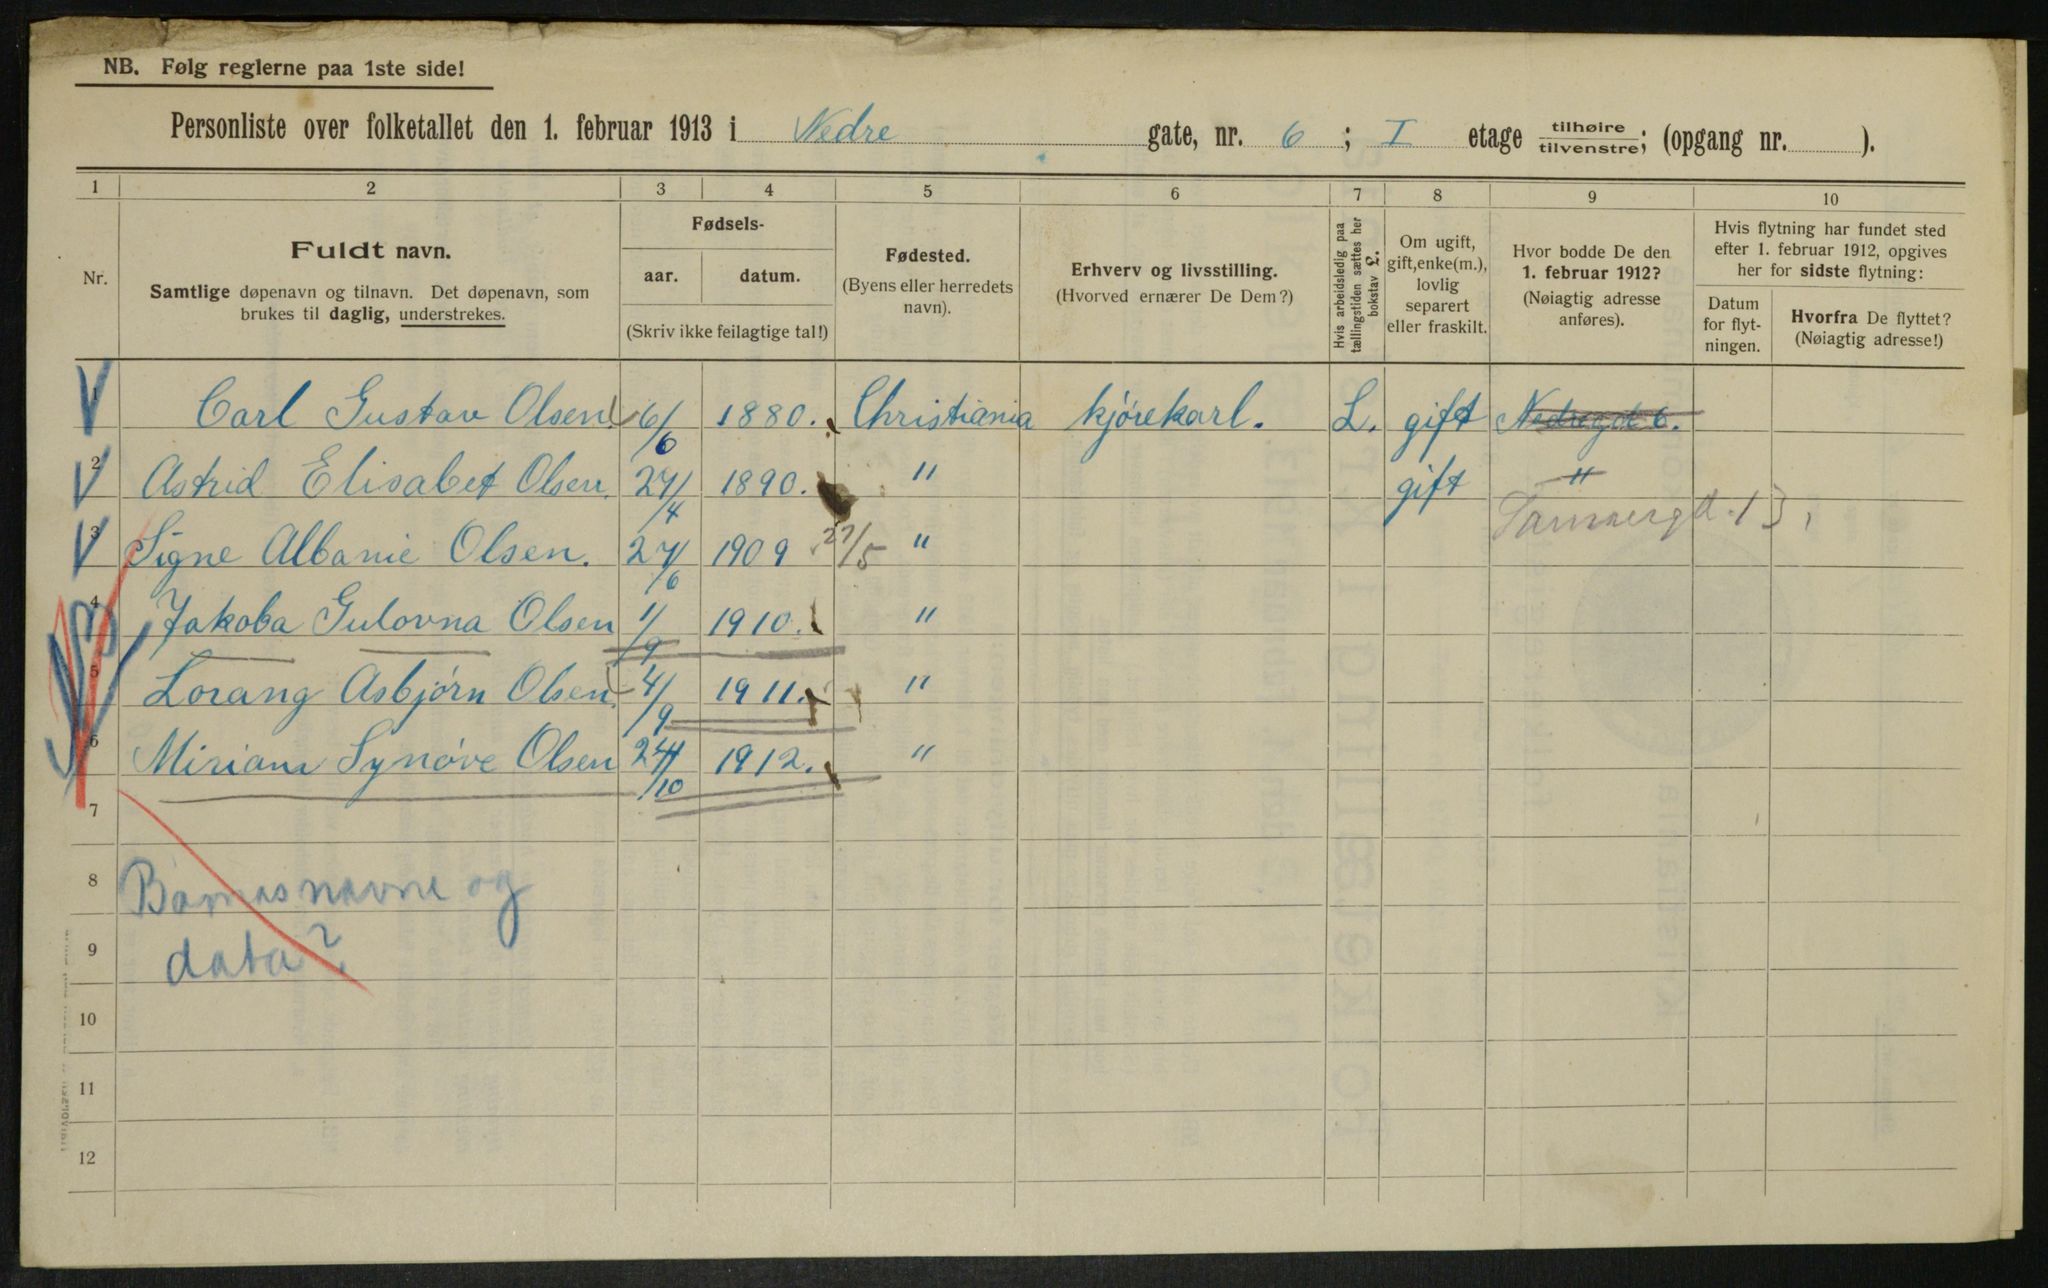 NB. Følg reglerne paa 1ste side!
Personliste over folketallet den 1. februar 1913 i Nedre gate, nr. 6 ; I etage tilhøire/tilvenstre; (opgang nr. ).
1 2 3 4 5 6 7 8 9 10
Nr.
Fuldt navn.
Samtlige døpenavn og tilnavn. Det døpenavn, som
brukes til daglig, understrekes.
Fødsels-
aar. datum.
(Skriv ikke feilagtige tal!)
Fødested.
(Byens eller herredets
navn).
Erhverv og livsstilling.
(Hvorved ernærer De Dem?)
Hvis arbeidsledig paa
tællingstiden sættes her
bokstav L.
Om ugift,
gift, enke(m.),
lovlig
separert
eller fraskilt.
Hvor bodde De den
1. februar 1912?
(Nøiagtig adresse
anføres).
Hvis flytning har fundet sted
efter 1. februar 1912, opgives
her for sidste flytning:
Datum
for flyt-
ningen.
Hvorfra De flyttet?
(Nøiagtig adresse!)
1 Carl Gustav Olsen. 6/6 1880. Christiania kjørekarl. L. gift Nedregd 6.
2 Astrid Elisabet Olsen. 27/4 1890. " gift "
3 Signe Albanie Olsen. 27/6 1909 27/5 "
4 Jakoba Gulovna Olsen 1/9 1910. "
5 Lorang Asbjørn Olsen. 4/9 1911. "
6 Miriam Synøve Olsen 24/10 1912. "
7
8 Barnas navne og
9 data?
10
11
12